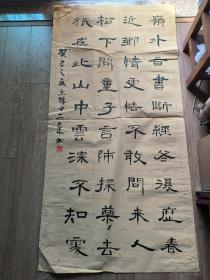 嶺外音書斷經冬復歷春
近鄉情更怯不敢問來人
松下問童子言師採藥去
祇在此山中雲深不知處
癸巳之夏